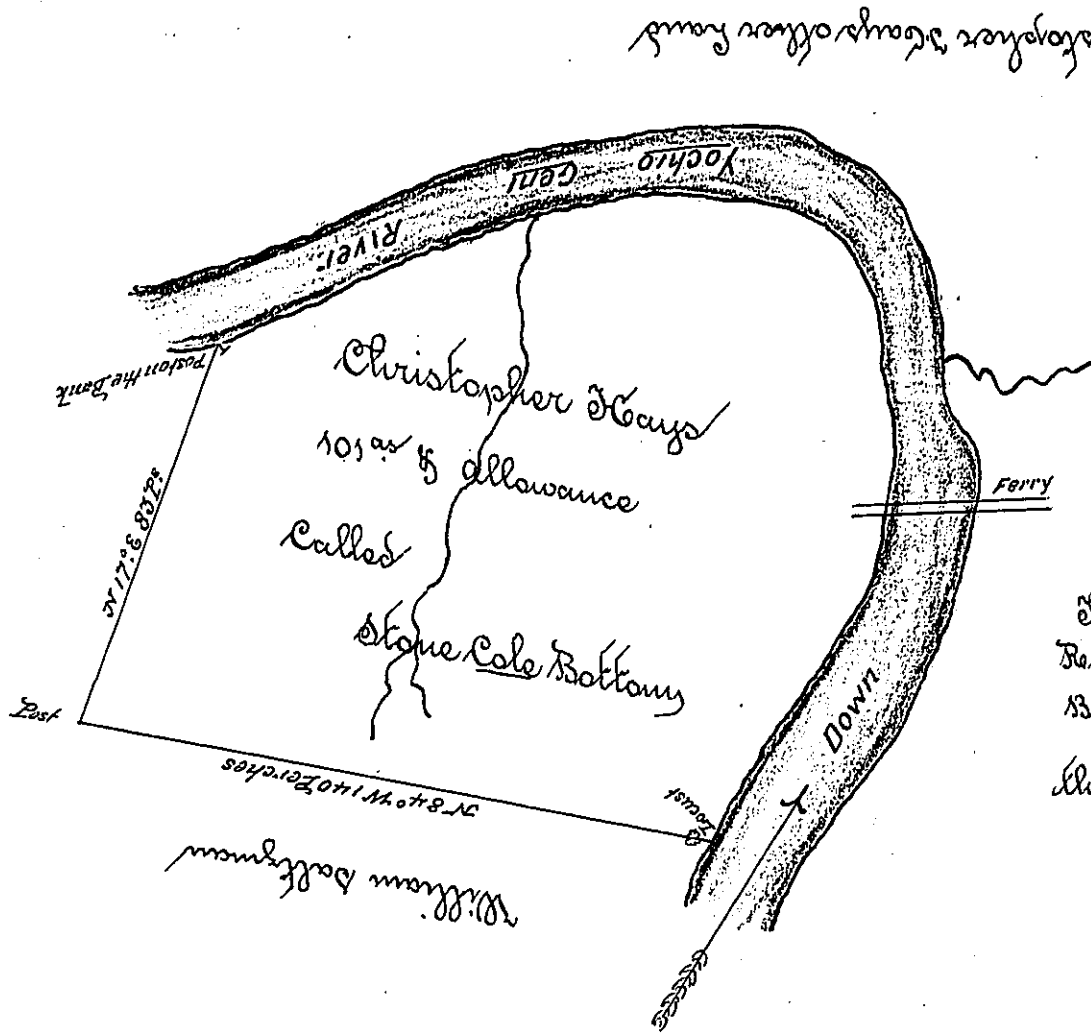 stopher Hays other land
Yochio
Geni
River.
Post on the Bank
Christopher Hays
101 as & allowance
Called
Stone Cole Bottom
Ferry
N 17° E 83 Ps
Post
N 84° W 140 Perches
Locust
Down
William Saltzman
Re